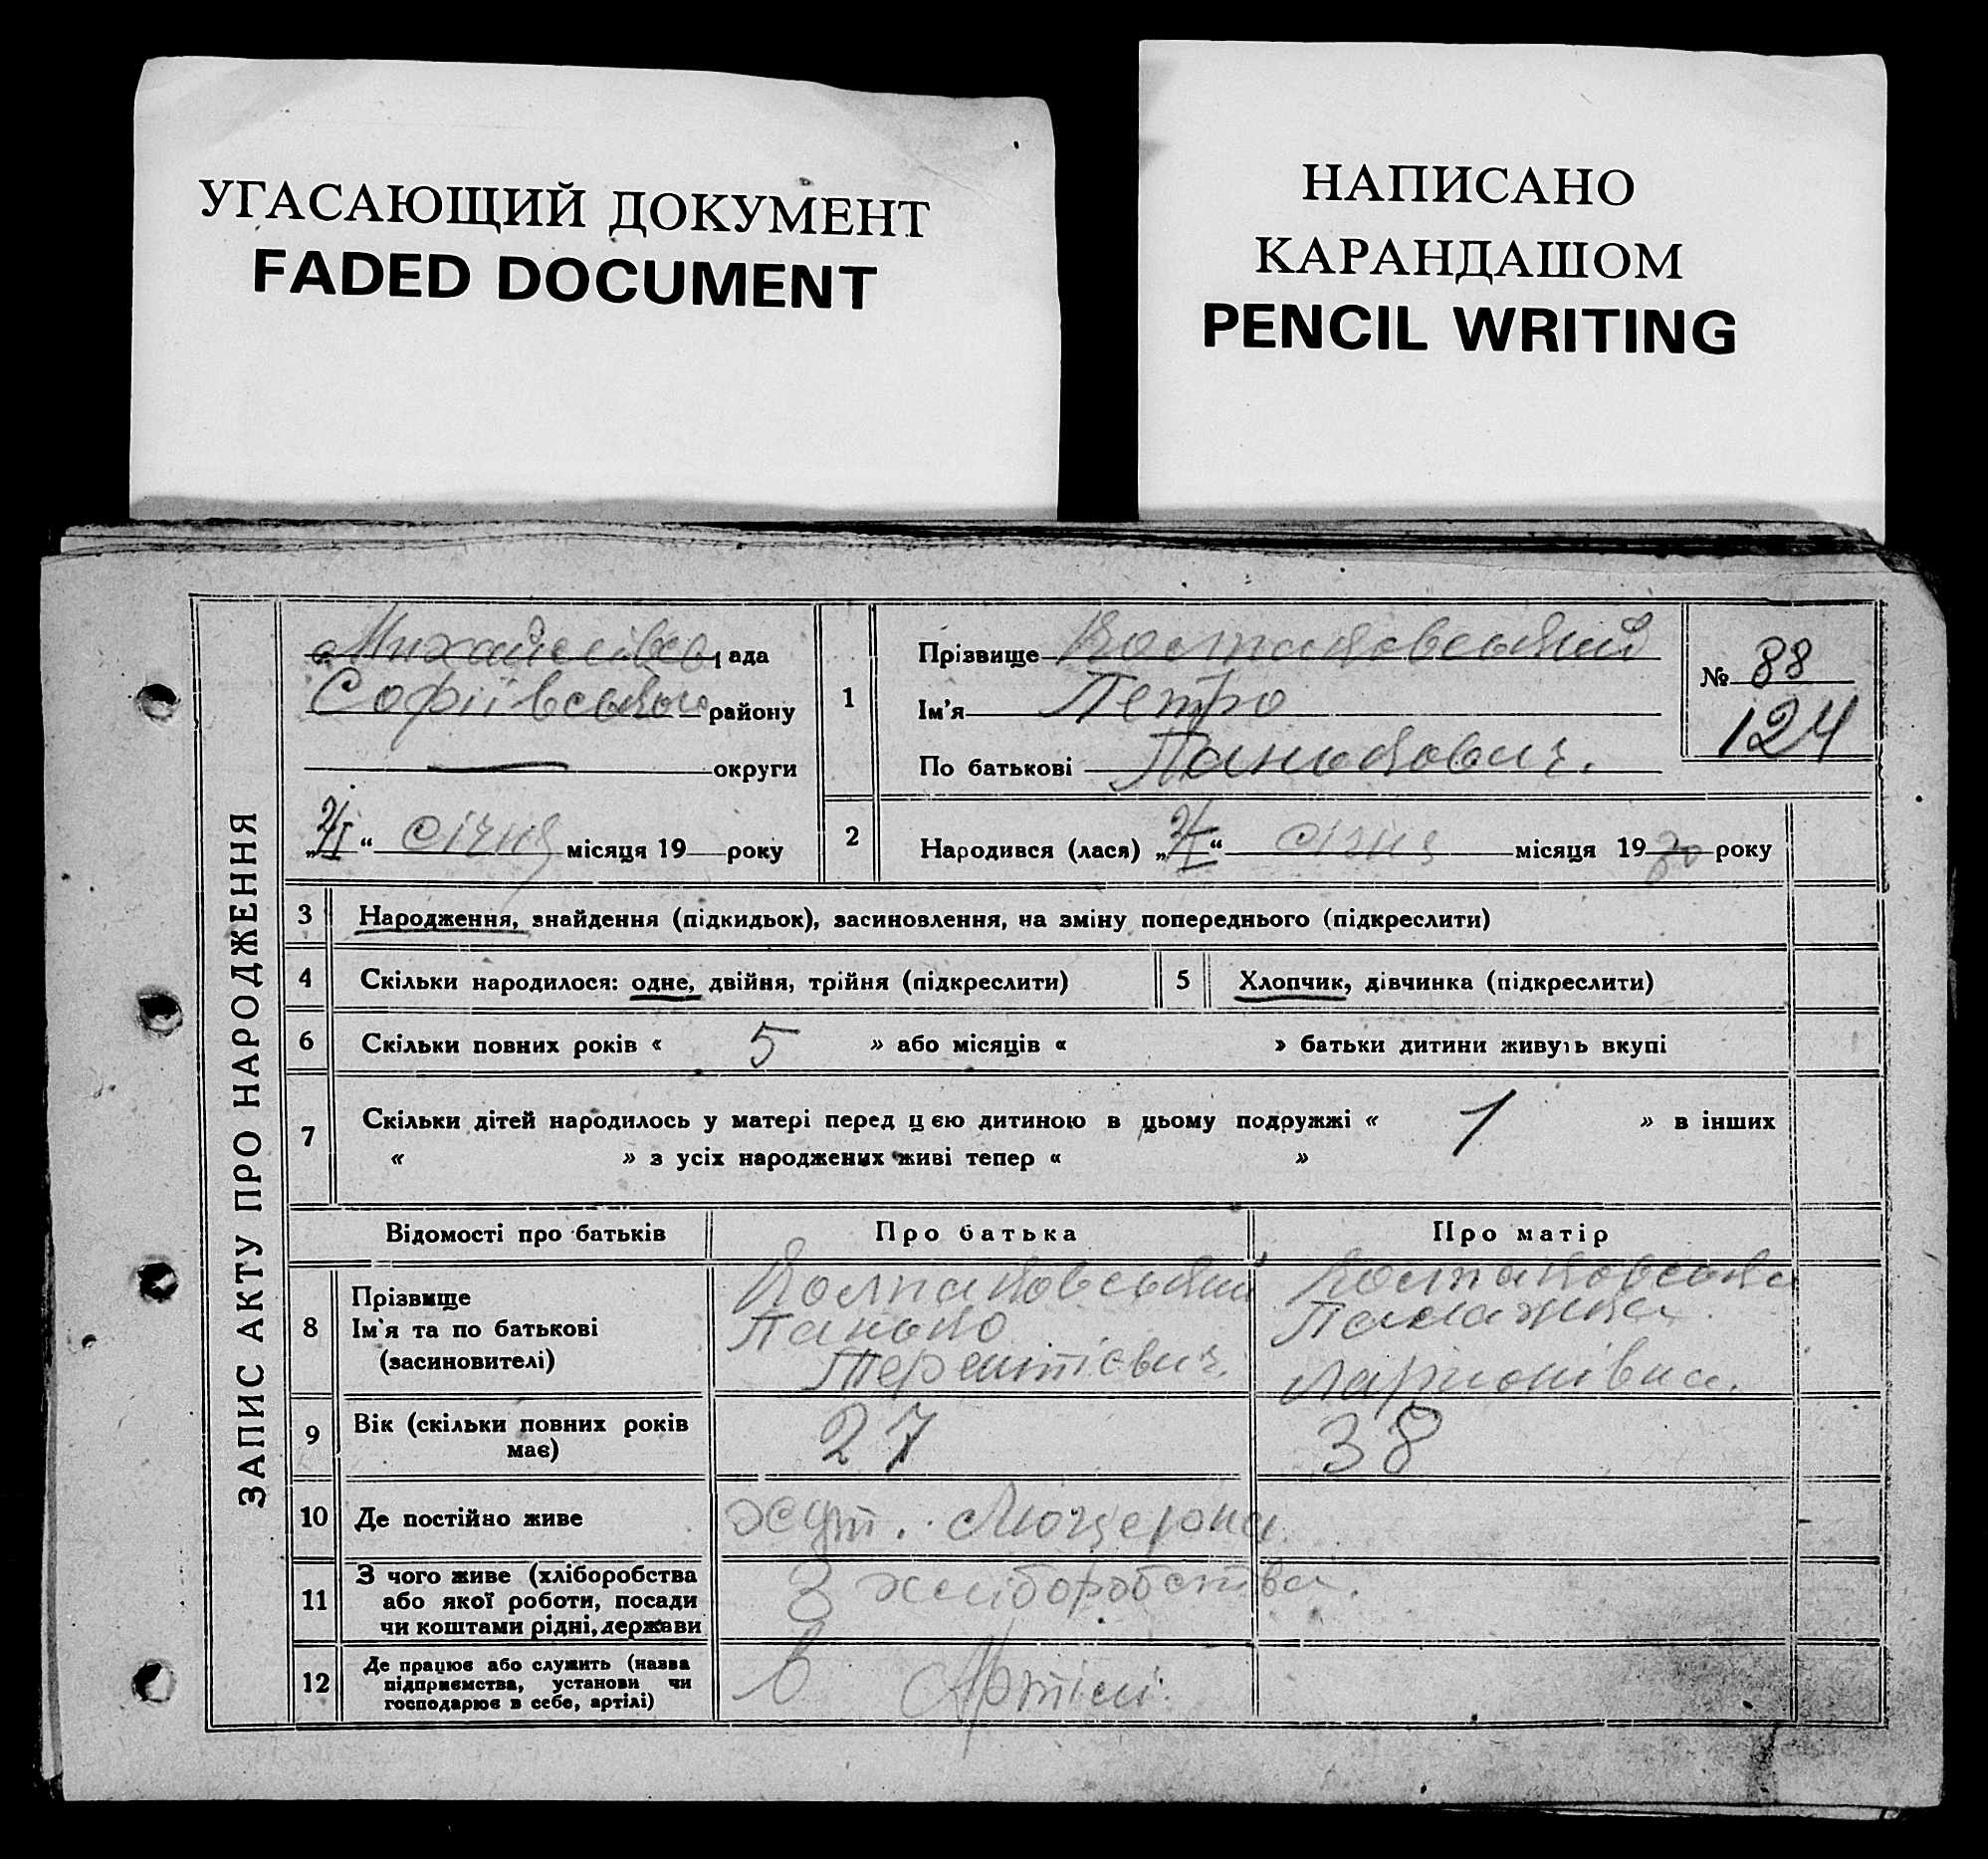 УГАСАЮЩИЙ ДОКУМЕНТ
FADED DOCUMENT
НАПИСАНО
КАРАНДАШОМ
PENCIL WRITING
ЗАПИС АКТУ ПРО НАРОДЖЕННЯ
рада
Софіївського району
округи
„ “ січня місяця 19 року
1
Прізвище
Ім'я Петро
По батькові Панькович.
№ 88
124
2
Народився (лася) „ “ січня місяця 1930 року
3 Народження, знайдення (підкидьок), засиновлення, на зміну попереднього (підкреслити)
4 Скільки народилося: одне, двійня, трійня (підкреслити)
5 Хлопчик, дівчинка (підкреслити)
6 Скільки повних років « 5 » або місяців « » батьки дитини живуть вкупі
7 Скільки дітей народилось у матері перед цєю дитиною в цьому подружжі « 1 » в інших
« » з усіх народжених живі тепер « »
Відомості про батьків
Про батька
Про матір
8
Прізвище
Ім'я та по батькові
(засиновителі)
Панько
Терентієвич.
Палажка.
Ларионівна.
9 Вік (скільки повних років
має)
27
38
10 Де постійно живе
хут. Люцерна.
11 З чого живе (хліборобства
або якої роботи, посади
чи коштами рідні, держави
З хліборобства.
12 Де працює або служить (назва
підприємства, установи чи
господарює в себе, артілі)
в Артілі.